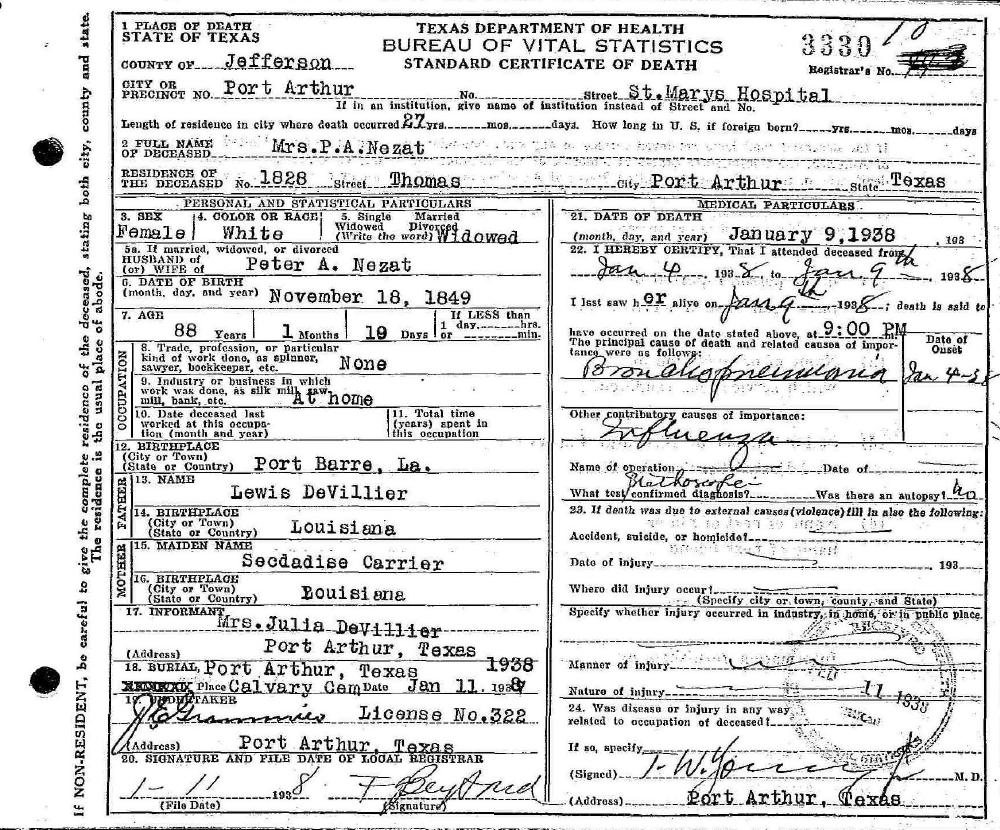 1 PLACE OF DEATH
STATE OF TEXAS
COUNTY OF Jefferson
CITY OR
PRECINCT NO. Port Arthur
TEXAS DEPARTMENT OF HEALTH
BUREAU OF VITAL STATISTICS
STANDARD CERTIFICATE OF DEATH
3330
10
Registrar's No.
No. Street St.Marys Hospital
If in an institution, give name of institution instead of Street and No.
Length of residence in city where death occurred 27 yrs. mos. days. How long in U. S. if foreign born? yrs. mos. days
2 FULL NAME
OF DECEASED Mrs.P.A.Nezat
RESIDENCE OF
THE DECEASED No. 1828 Street Thomas City Port Arthur State Texas
PERSONAL AND STATISTICAL PARTICULARS
3. SEX
Female
4. COLOR OR RACE
White
5. Single Married
Widowed Divorced
(Write the word) Widowed
5a. If married, widowed, or divorced
HUSBAND OF
(or) WIFE of Peter A. Nezat
6. DATE OF BIRTH
(month, day, and year) November 18, 1849
7. AGE
88 Years 1 Months 19 Days
If LESS than
1 day, hrs.
or min.
OCCUPATION
8. Trade, profession, or particular
kind of work done, as spinner,
sawyer, bookkeeper, etc. None
9. Industry or business in which
work was done, as silk mill, saw
mill, bank, etc. At home
10. Date deceased last
worked at this occupa-
tion (month and year)
11. Total time
(years) spent in
this occupation
12. BIRTHPLACE
(City or Town)
(State or Country) Port Barre, La.
FATHER
13. NAME
Lewis DeVillier
14. BIRTHPLACE
(City or Town)
(State or Country) Louisiana
MOTHER
15. MAIDEN NAME
Secdadise Carrier
16. BIRTHPLACE
(City or Town)
(State or Country) Louisiana
17. INFORMANT
Mrs.Julia DeVillier
(Address) Port Arthur, Texas
18. BURIAL, Port Arthur, Texas 1938
Place Calvary Cem Date Jan 11. 1938
19. UNDERTAKER
License No.322
(Address) Port Arthur, Texas
20. SIGNATURE AND FILE DATE OF LOCAL REGISTRAR
1-11 1938
(File Date) (Signature)
MEDICAL PARTICULARS
21. DATE OF DEATH
(month, day, and year) January 9,1938 , 193
22. I HEREBY CERTIFY, That I attended deceased from
Jan 4 , 1938 to Jan 9th , 1938
I last saw her alive on Jan 9th 1938; death is said to
have occurred on the date stated above, at 9:00 PM
The principal cause of death and related causes of impor-
tance were as follows:
Date of
Onset
Bronchopneumonia Jan 4-38
Other contributory causes of importance:
Influenza
Name of operation Date of
What test confirmed diagnosis? Stethoscope Was there an autopsy? No
23. If death was due to external causes (violence) fill in also the following:
Accident, suicide, or homicide?
Date of injury 193
Where did injury occur?
(Specify city or town, county, and State)
Specify whether injury occurred in industry, in home, or in public place.
Manner of injury
Nature of injury
11 1938
24. Was disease or injury in any way
related to occupation of deceased?
If so, specify
(Signed) M. D.
(Address) Port Arthur, Texas
If NON-RESIDENT, be careful to give the complete residence of the deceased, stating both city, county and state.
The residence is the usual place of abode.